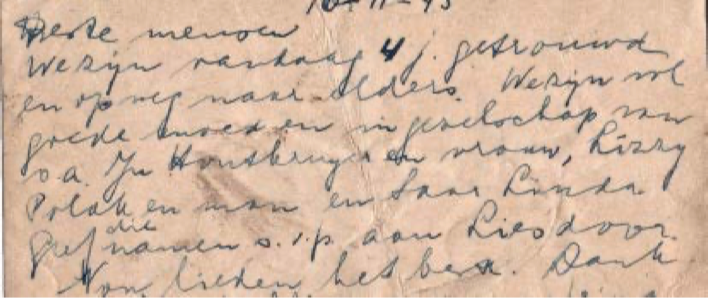 16-11-43
Beste mensen
We zijn vandaag 4 j. getrouwd
en op weg naar elders. We zijn vol
goede moed en in gezelschap van
o.a. Ju Houtkruyer en vrouw, Lizzy
Polak en man en Saar Linda.
Geef die namen s.v.p. aan Lies door.
het best. Dank